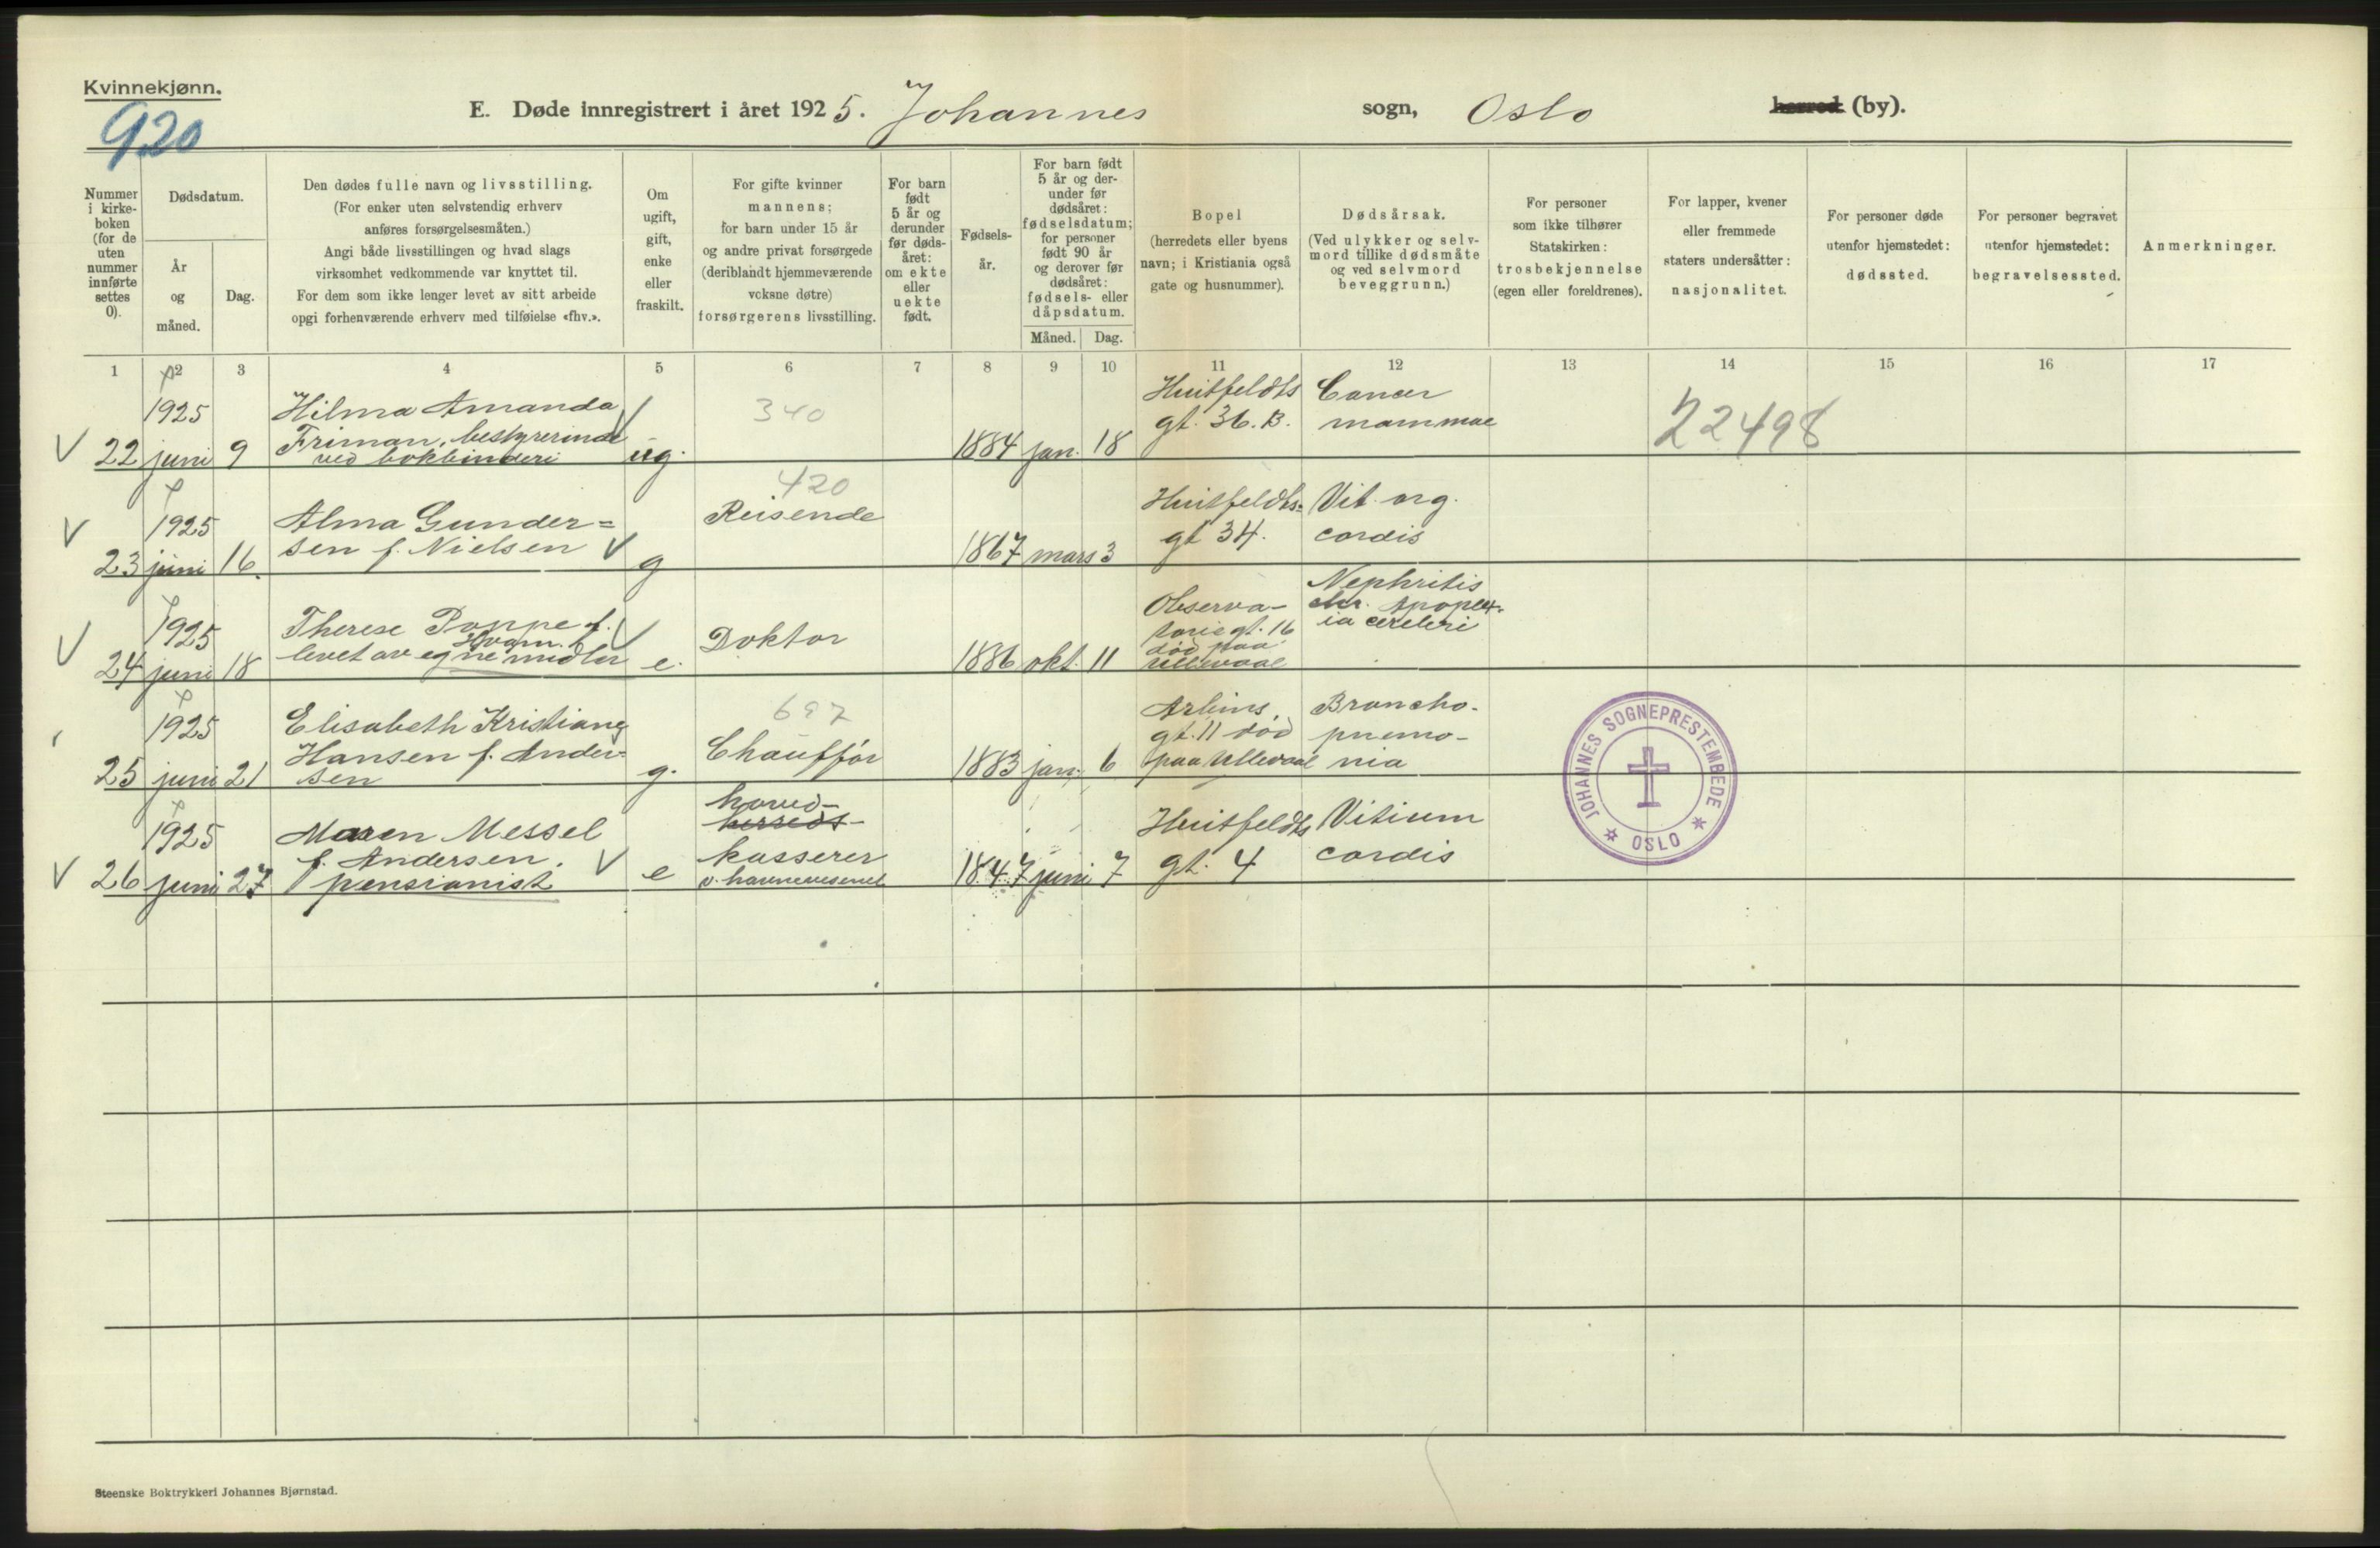 Kvinnekjønn.
920
E. Døde innregistrert i året 1925. Johannes sogn, Oslo herred (by).
Nummer i kirke- boken (for de uten nummer innførte settes 0).
Dødsdatum.
År og måned.
Dag.
Den dødes fulle navn og livsstilling.
(For enker uten selvstendig erhverv
anføres forsørgelsesmåten.)
Angi både livsstillingen og hvad slags
virksomhet vedkommende var knyttet til.
For dem som ikke lenger levet av sitt arbeide
opgi forhenværende erhverv med tilføielse «fhv.».
Om ugift, gift, enke eller fraskilt.
For gifte kvinner
mannens;
for barn under 15 år
og andre privat forsørgede
(deriblandt hjemmeværende
voksne døtre)
forsørgerens livsstilling.
For barn født 5 år og derunder før døds- året: om ekte eller uekte født.
Fødsels- år.
For barn født
5 år og der-
under før
dødsåret:
fødselsdatum;
for personer
født 90 år
og derover før
dødsåret:
fødsels- eller
dåpsdatum.
Måned. Dag.
Bopel
(herredets eller byens
navn; i Kristiania også
gate og husnummer).
Dødsårsak.
(Ved ulykker og selv-
mord tillike dødsmåte
og ved selvmord
beveggrunn.)
For personer
som ikke tilhører
Statskirken:
trosbekjennelse
(egen eller foreldrenes).
For lapper, kvener
eller fremmede
staters undersåtter:
nasjonalitet.
For personer døde
utenfor hjemstedet:
dødssted.
For personer begravet
utenfor hjemstedet:
begravelsessted.
Anmerkninger.
1 2 3 4 5 6 7 8 9 10 11 12 13 14 15 16 17
V 22 1925 juni 9
Hilma Amanda
Friman, bestyrerinde
ved bokbinderi
ug.
340
1884 jan. 18
Huitfeldts
gt. 36. B.
Cancer
mammae
22498
V 23 1925 juni 16.
Alma Gunder=
sen f. Nielsen V
g
420
Reisende
1867 mars 3
Huitfeldts=
gt 34.
Vit. org.
cordis
V 24 1925 juni 18
Therese Poppe f.
levet av egne midler
e.
Doktor
1886 okt. 11
Observa-
toriegt. 16
død paa
Ullevaal
Nephritis
chr. Apoplex-
ia cerebri
25 1925 juni 21
Elisabeth Kristiane
Hansen f. Ander-
sen
g.
697
Chauffør
1883 jan. 6
Arbins
gt. 11 død
paa Ullevaal
Broncho-
pnemo-
nia
V 26 1925 juni 27
Maren Messel
f. Andersen. V
pensionist
e
hoved-
herreds-
kasserer
v. havnevesenet
1847 juni 7
Huitfeldts
gt. 4
Vitium
cordis
JOHANNES SOGNEPRESTEMBEDE
* OSLO *
Steenske Boktrykkeri Johannes Bjørnstad.